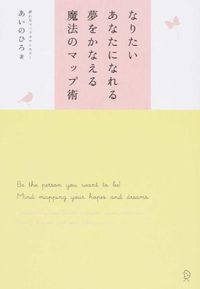 なりたい
あなたになれる
夢をかなえる
魔法のマップ術
あいのひろ 著
Be the person you want to be!
Mind mapping your hopes and dreams